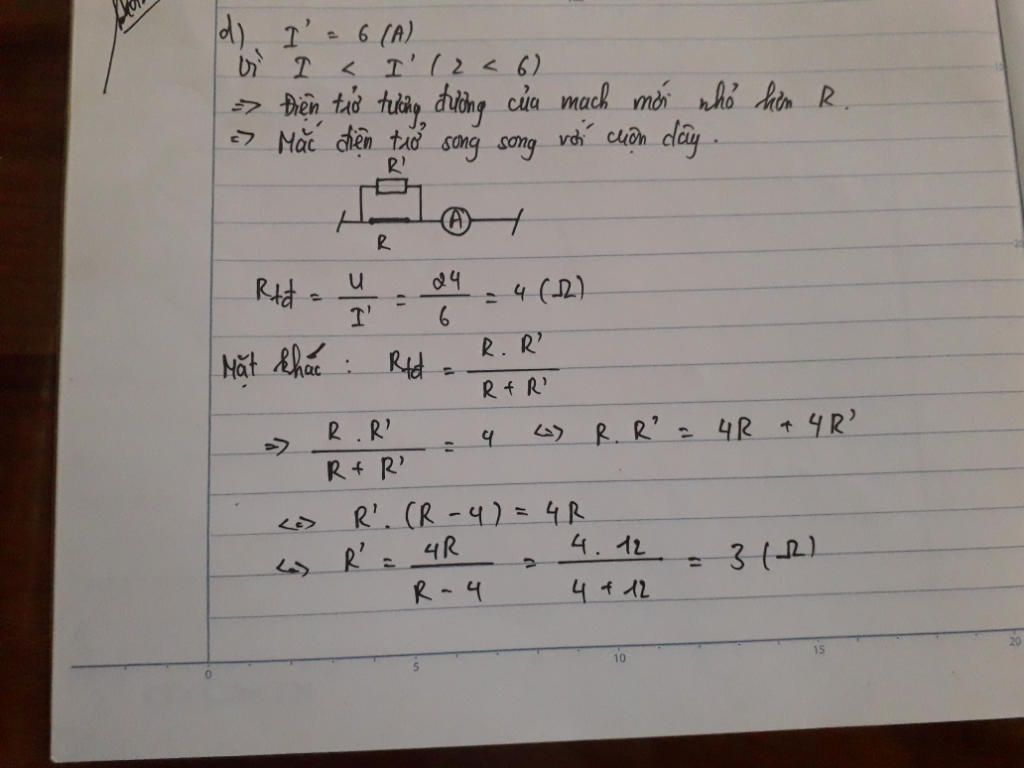 d) I' = 6 (A)
Vì I < I' (2 < 6)
=> Điện trở tương đương của mạch mới nhỏ hơn R.
=> Mắc điện trở song song với cuộn dây.
R'
A
R
Rtđ = U/I' = 24/6 = 4 (Ω)
Mặt khác : Rtđ = R . R' / R + R'
=> R . R' / R + R' = 4 <=> R . R' = 4R + 4R'
<=> R' . (R - 4) = 4R
<=> R' = 4R / R - 4 = 4 . 12 / 4 + 12 = 3 (Ω)
0 5 10 15 20